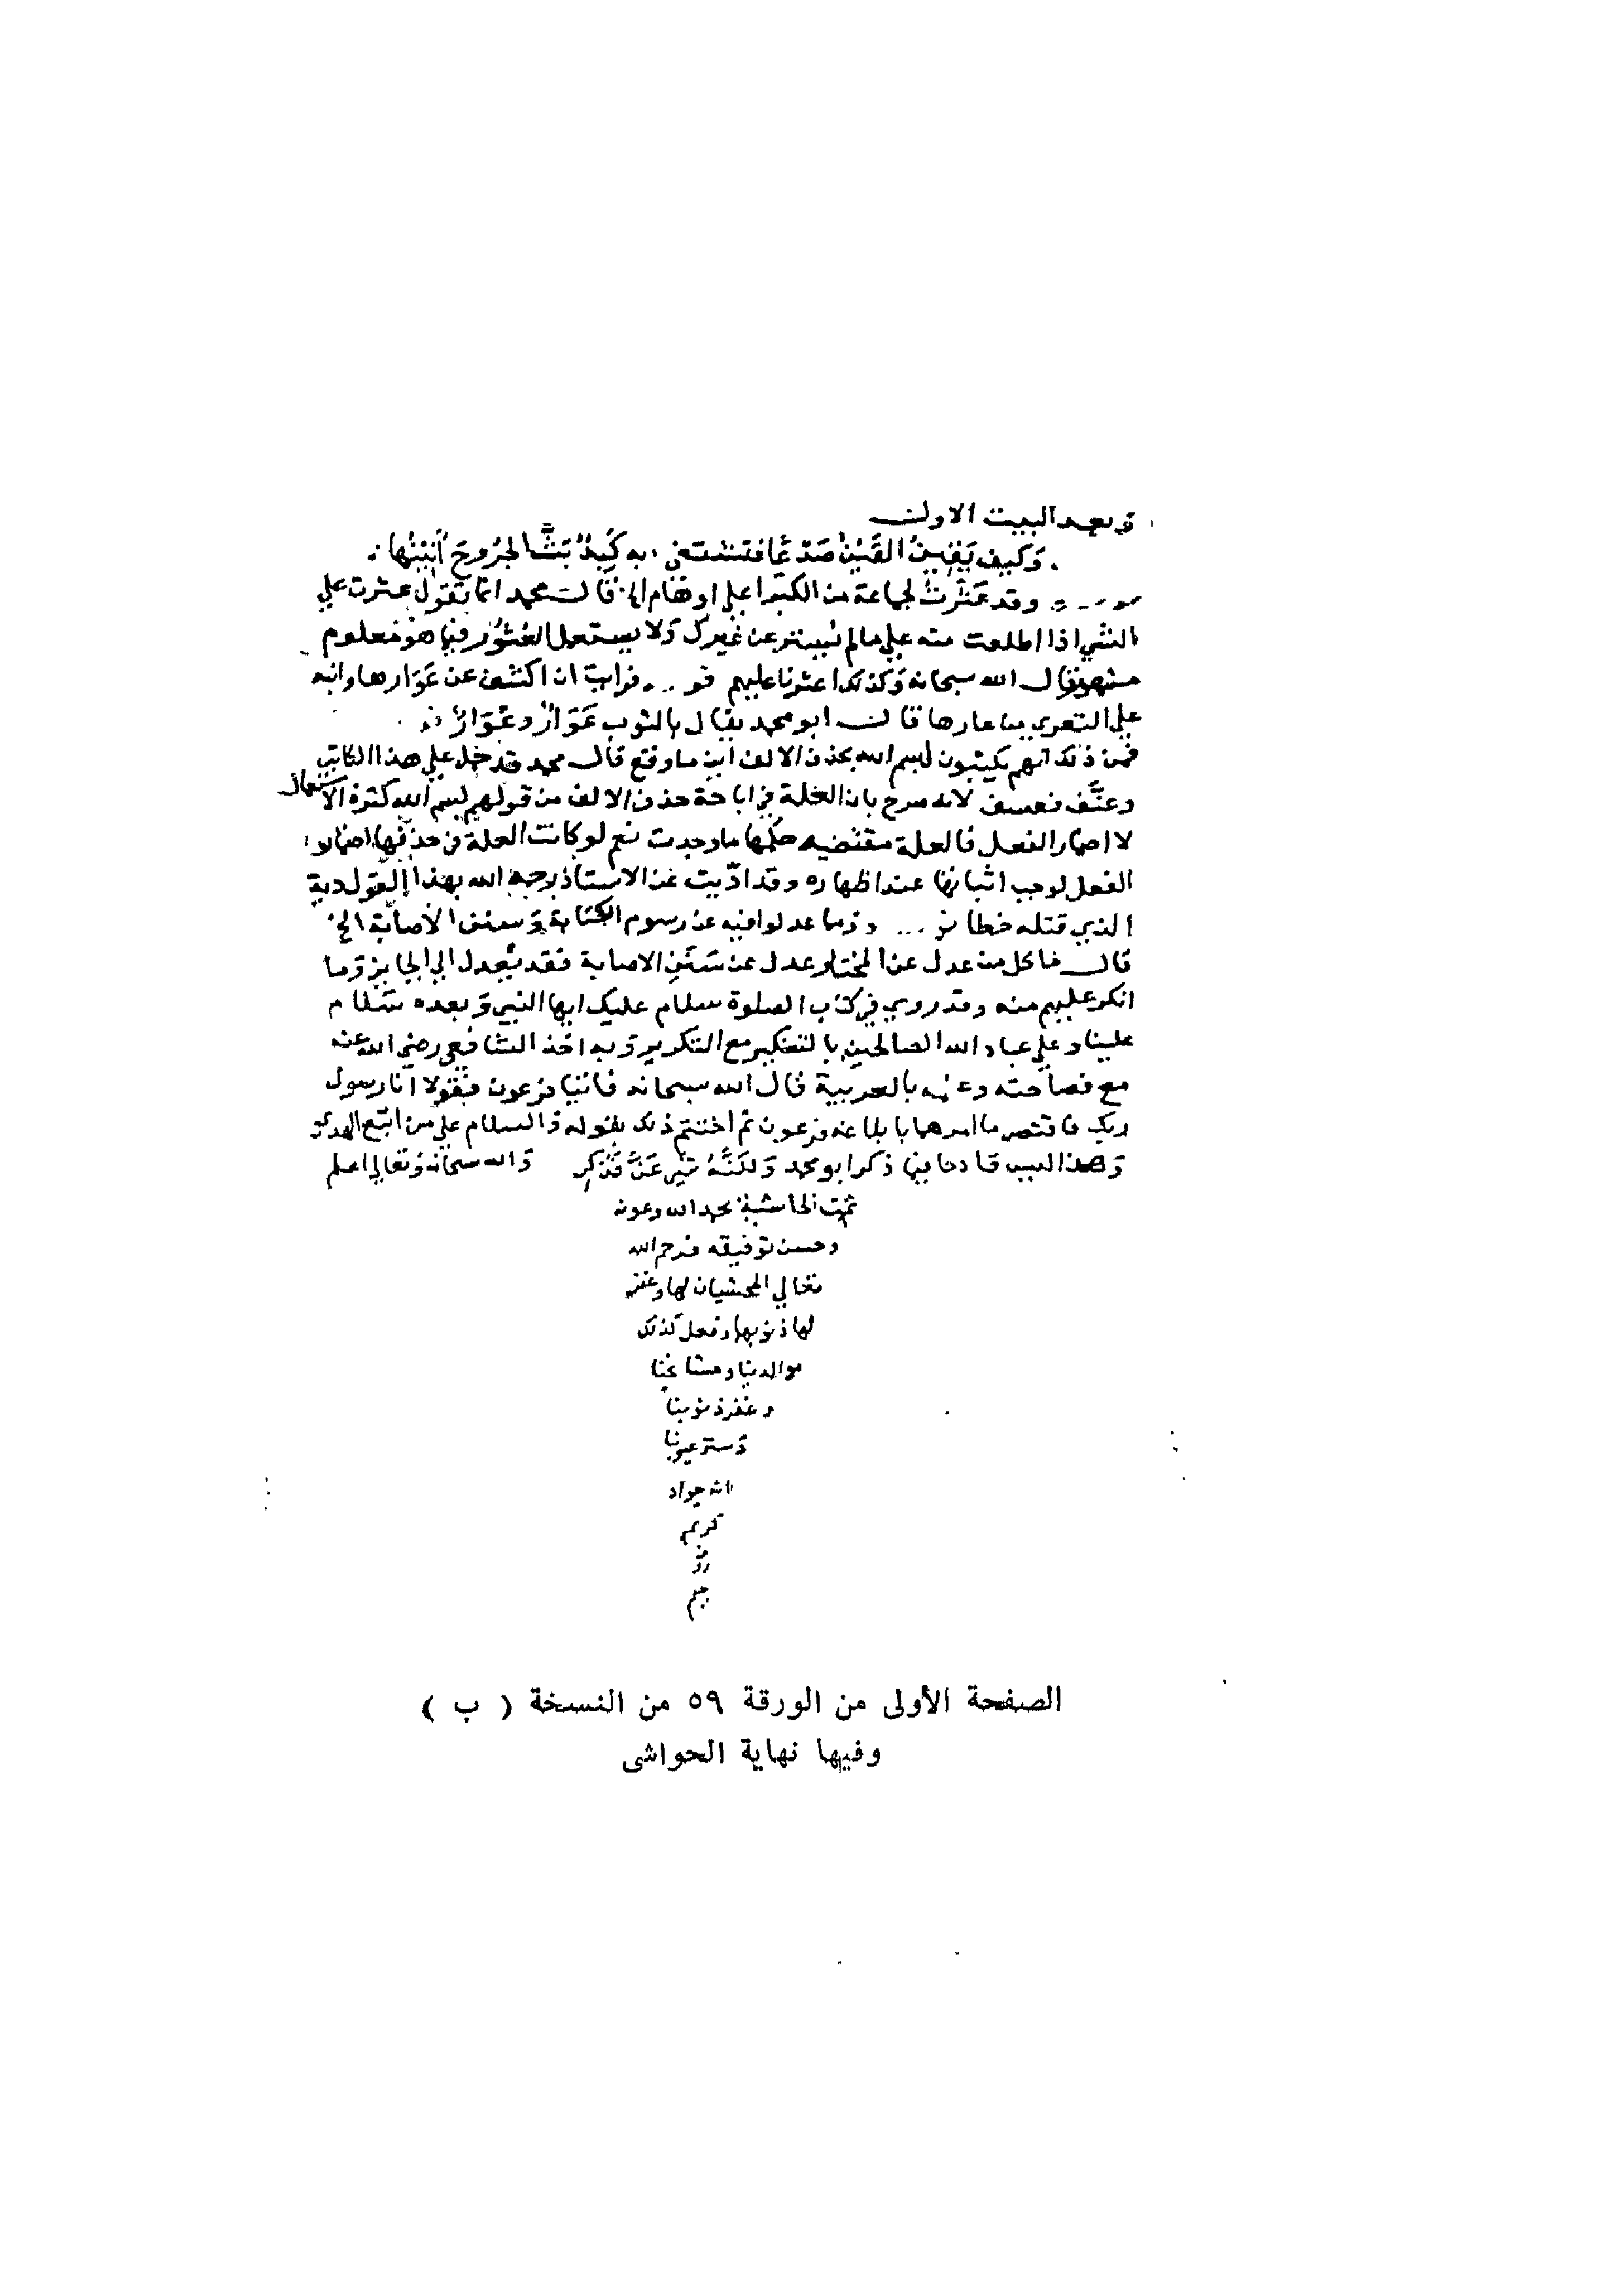 وبعد البيت الاول
وكيف يَفيق القين صدعًا فتشتفي به كَبِدٌ بَثّا لجروح أنينها
وقد عَثَرتُ لجماعة من الكبرا على اوهام الخ قال محمد انما تقول عثرت على
الشي اذا اطلعت منه على مالم عن غيرك ولا يستعمل العثور فيما هو معلوم
مشهور قال الله سبحانه وكذلك اعثرنا عليهم قو ... فرايت ان اكشف عن عَوارها وانبه
على التعري من عارها قال ابو محمد يقال بالثوب عَوَارٌ وعُوَارٌ
فمن ذلك انهم يكتبون لبسم الله بحذف الالف اين ما وقع قال محمد قد دخل على هذا الكاتب
وعنَّف فعسف لانه صرح بان العلة في اباحة حذف الالف من قولهم لبسم الله كثرة الاستعمال
لا اضمار الفعل فالعلة مقتضيه حكمها ما وجدت نعم لو كانت العلة في حذفها اضمار
الفعل لوجب اثباتها عند اظهاره وقد ادّيت عن الاستاذ رحمه الله بهذا القول دية
الذي قتله خطا قو ... ومما عدلوا فيه عن رسوم الكتابة وسنن الاصابة الخ
قال ما كل من عدل عن المختار عدل عن سَنَنِ الاصابة فقد يُعدل الى الجايز وما
انكر عليهم منه وقد روي في كتاب الصلوة سلام عليك ايها النبي وبعده سَلام
علينا وعلى عباد الله الصالحين بالتنكير مع التكرير وبه اخذ الشافعي رضي الله عنه
مع فصاحته بالعربية قال الله سبحانه فائتيا فرعون فقولا انا رسول
ربك فاقتصر ما امرهما بابلاغه فرعون ثم اختتم ذلك بقوله والسلام على من اتبع الهدى
وهذا ليس قادحا فيما ذكر ابو محمد ولكنَّهُ شي عَنَّ فَذُكِر والله سبحانه وتعالى اعلم
تمت الحاشية بحمد الله وعونه
وحسن توفيقه فرحم الله
تعالى المحشيان لها وغفر
لها ذنوبها وفعل كذلك
بوالدينا ومشايخنا
وغفر ذنوبنا
وستر عيوبنا
انه جواد
كريم
الصفحة الأولى من الورقة ٥٩ من النسخة ( ب )
وفيها نهاية الحواشى